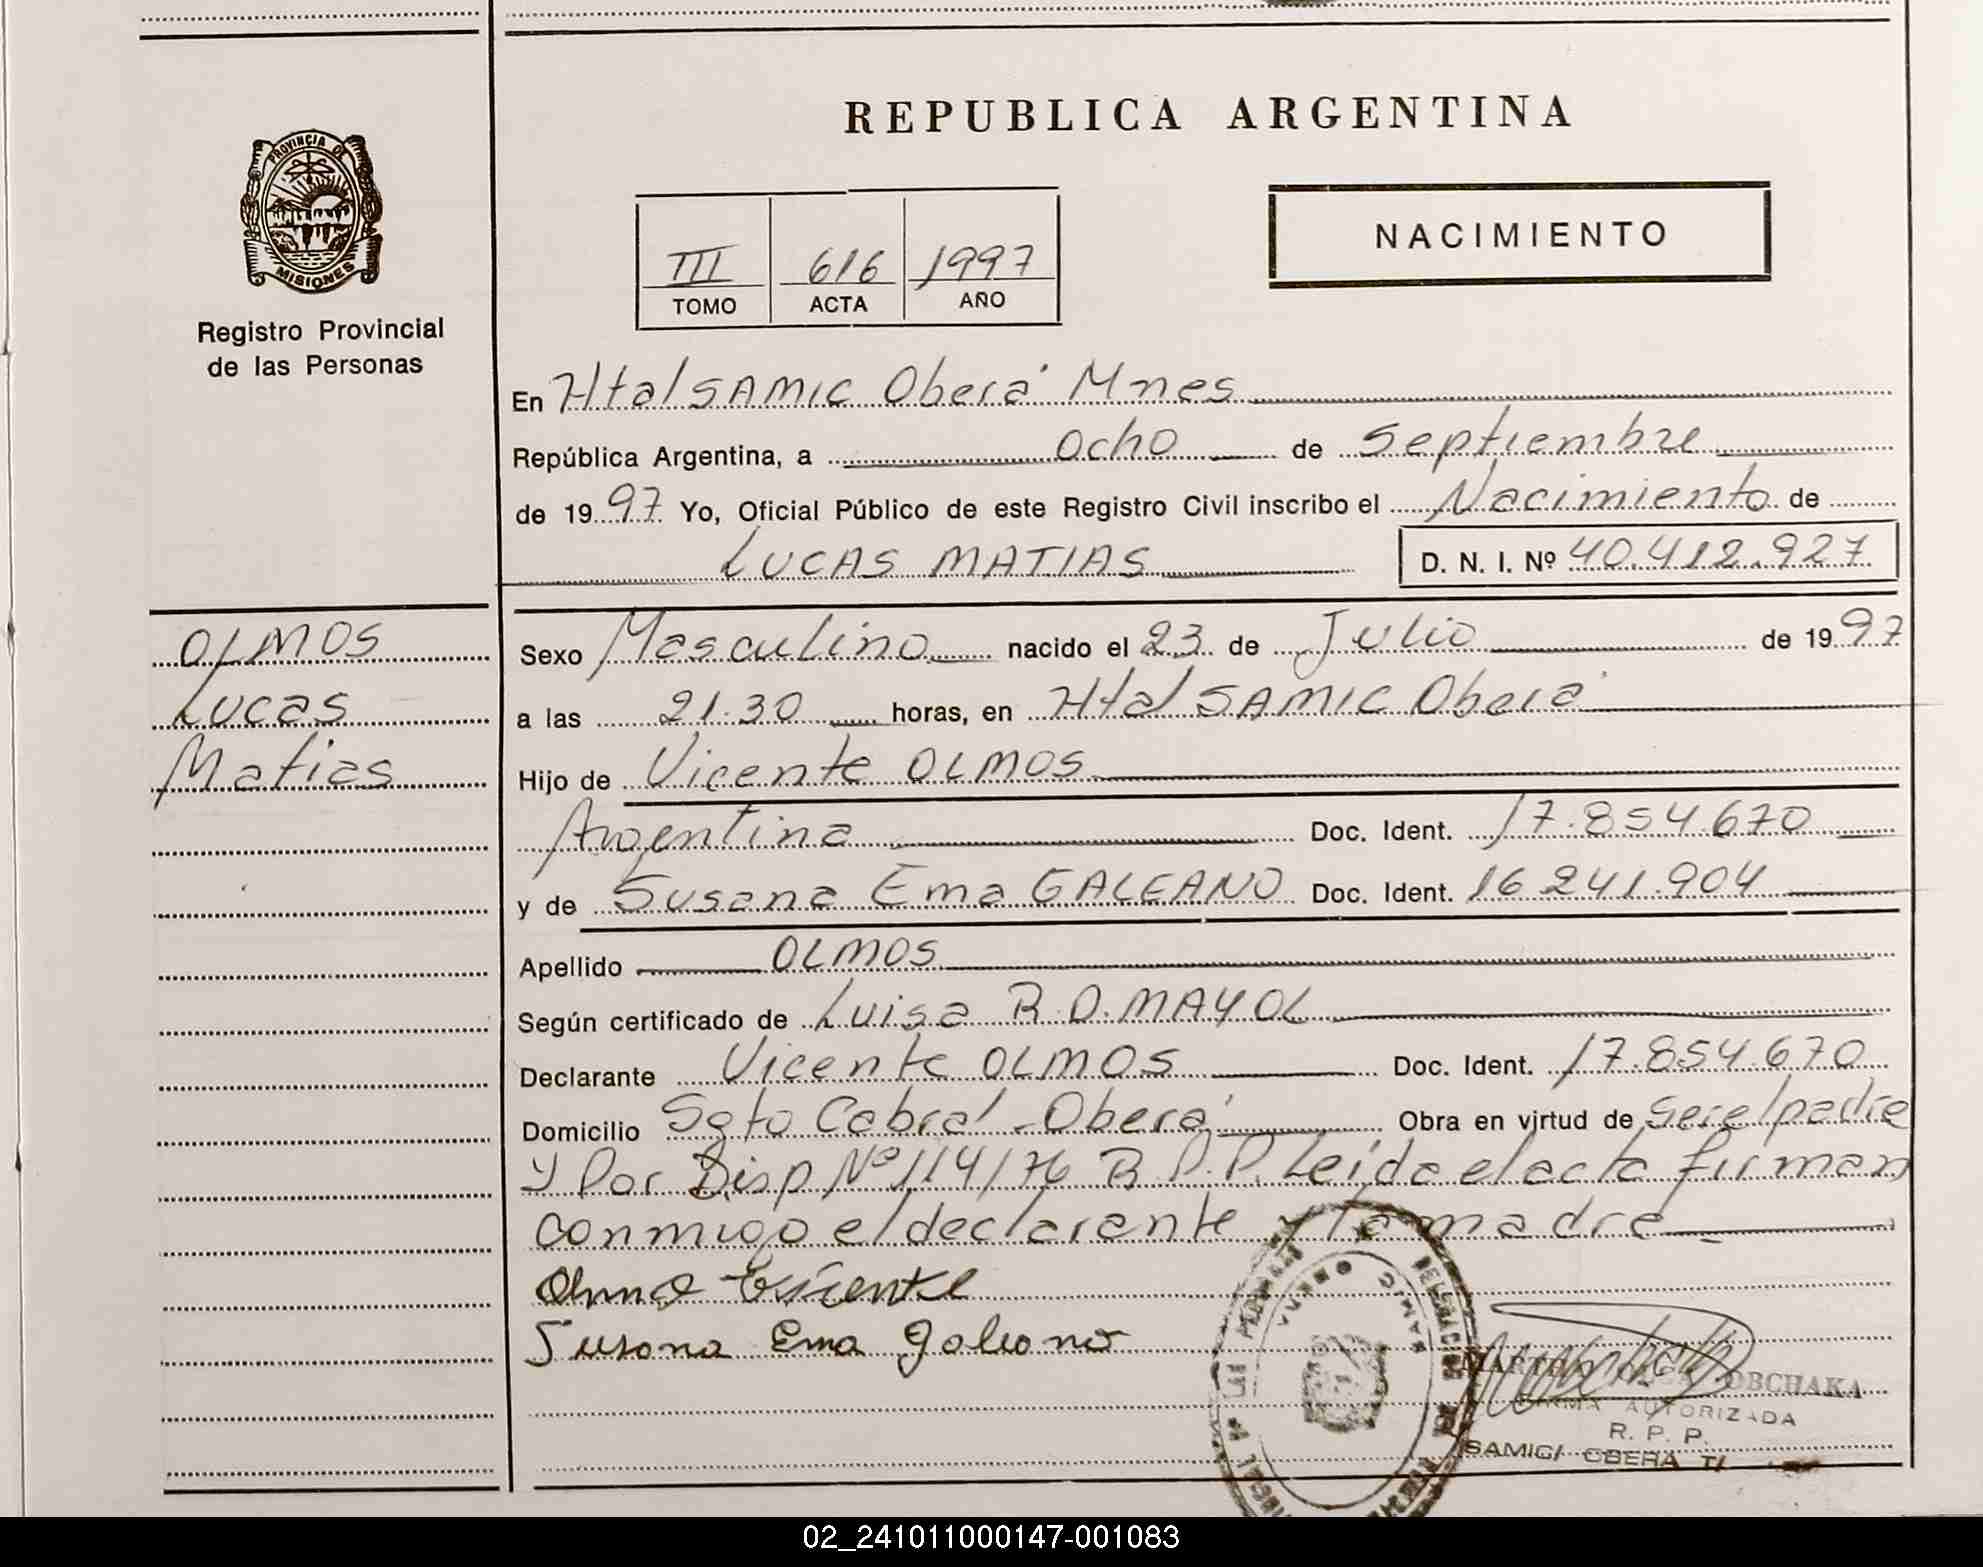 PROVINCIA DE
MISIONES
Registro Provincial
de las Personas
OLMOS
Lucas
Matias
REPUBLICA ARGENTINA
III 616 1997
TOMO ACTA AÑO
NACIMIENTO
En Htal SAMIC Oberá Mnes
República Argentina, a ocho de Septiembre
de 1997 Yo, Oficial Público de este Registro Civil inscribo el Nacimiento de
LUCAS MATIAS D. N. I. Nº 40.412.927
Sexo Masculino nacido el 23 de Julio de 1997
a las 21.30 horas, en Htal SAMIC Oberá
Hijo de Vicente OLMOS
Argentina Doc. Ident. 17.854.670
y de Susana Ema GALEANO Doc. Ident. 16 241.904
Apellido OLMOS
Según certificado de Luisa R.D. MAYOL
Declarante Vicente OLMOS Doc. Ident. 17.854.670
Domicilio Sgto Cabral - Oberá Obra en virtud de ser el padre
y Por Disp Nº 114/76 R.P.P. Leída el acta firman
conmigo el declarante y la madre
Olmo Vicente
Susana Ema Galeano
OBCHAKA
FIRMA AUTORIZADA
R. P. P.
SAMIC/ OBERA
02_241011000147-001083